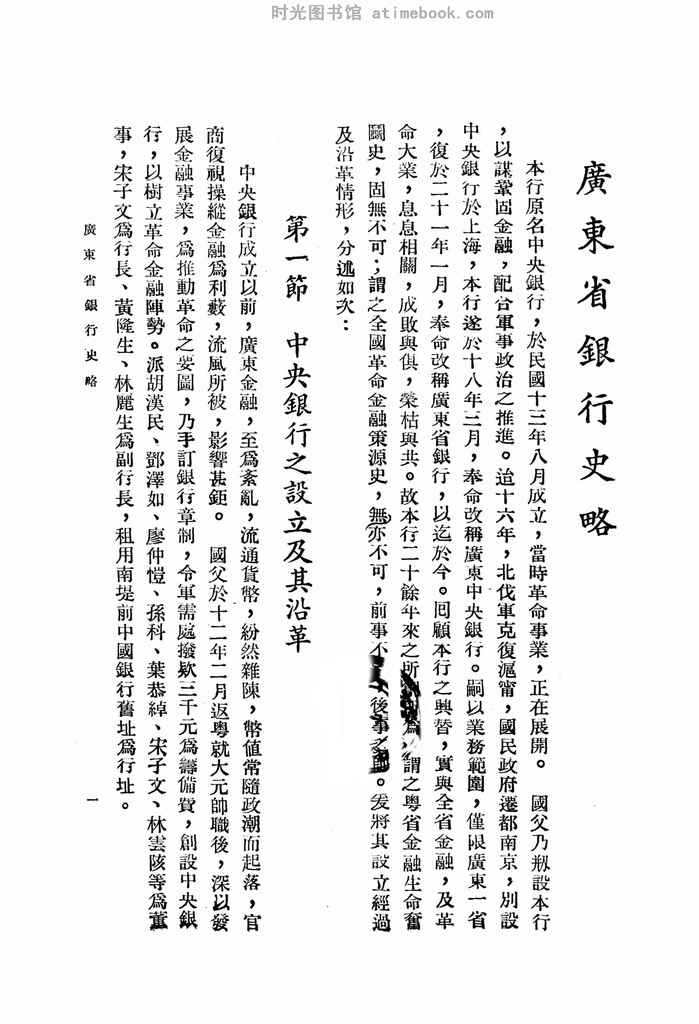 时光图书馆 atimebook.com
廣東省銀行史略
本行原名中央銀行，於民國十三年八月成立，當時革命事業，正在展開。 國父乃剏設本行
，以謀鞏固金融，配合軍事政治之推進。迨十六年，北伐軍克復滬甯，國民政府遷都南京，別設
中央銀行於上海，本行遂於十八年三月，奉命改稱廣東中央銀行。嗣以業務範圍，僅限廣東一省
，復於二十一年一月，奉命改稱廣東省銀行，以迄於今。囘顧本行之興替，實與全省金融，及革
命大業，息息相關，成敗與俱，榮枯與共。故本行二十餘年來之所爲，謂之粵省金融生命奮
鬭史，固無不可；謂之全國革命金融策源史，無亦不可，前事不後事之師。爰將其設立經過
及沿革情形，分述如次：
第一節 中央銀行之設立及其沿革
中央銀行成立以前，廣東金融，至爲紊亂，流通貨幣，紛然雜陳，幣值常隨政潮而起落，官
商復視操縱金融爲利藪，流風所被，影響甚鉅。 國父於十二年二月返粵就大元帥職後，深以發
展金融事業，爲推動革命之要圖，乃手訂銀行章制，令軍需處撥欵三千元爲籌備費，創設中央銀
行，以樹立革命金融陣勢。派胡漢民、鄧澤如、廖仲愷、孫科、葉恭綽、宋子文、林雲陔等爲董
事，宋子文爲行長、黃隆生、林麗生爲副行長，租用南堤前中國銀行舊址爲行址。
廣東省銀行史略
一